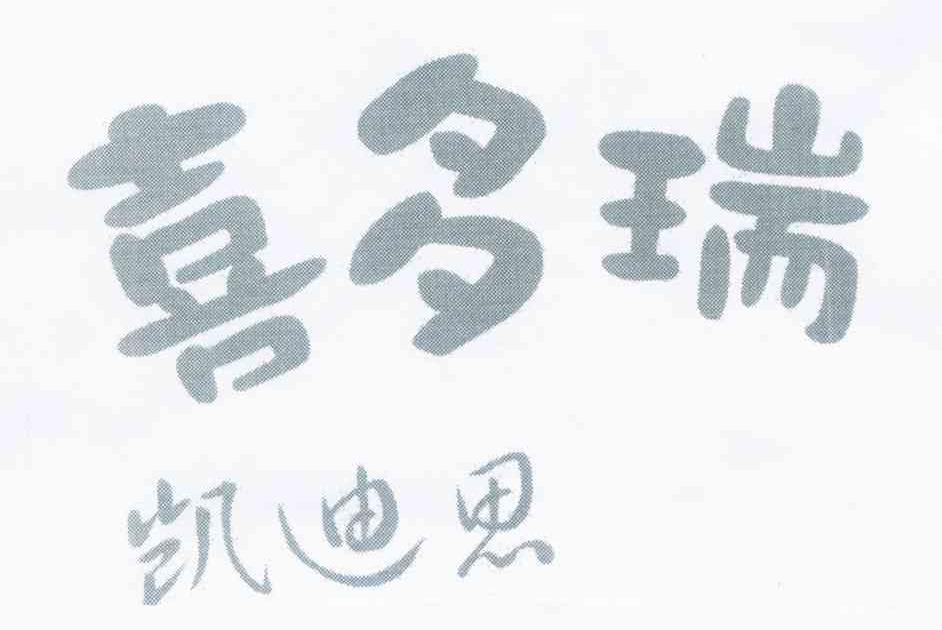 喜多瑞
凯迪思